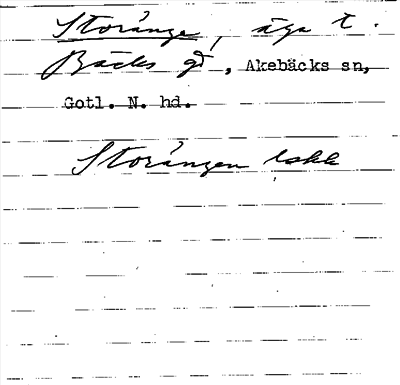 Storänge, äga t.
Bäcks gd, Akebäcks sn,
Gotl. N. hd.
Storängen lokk